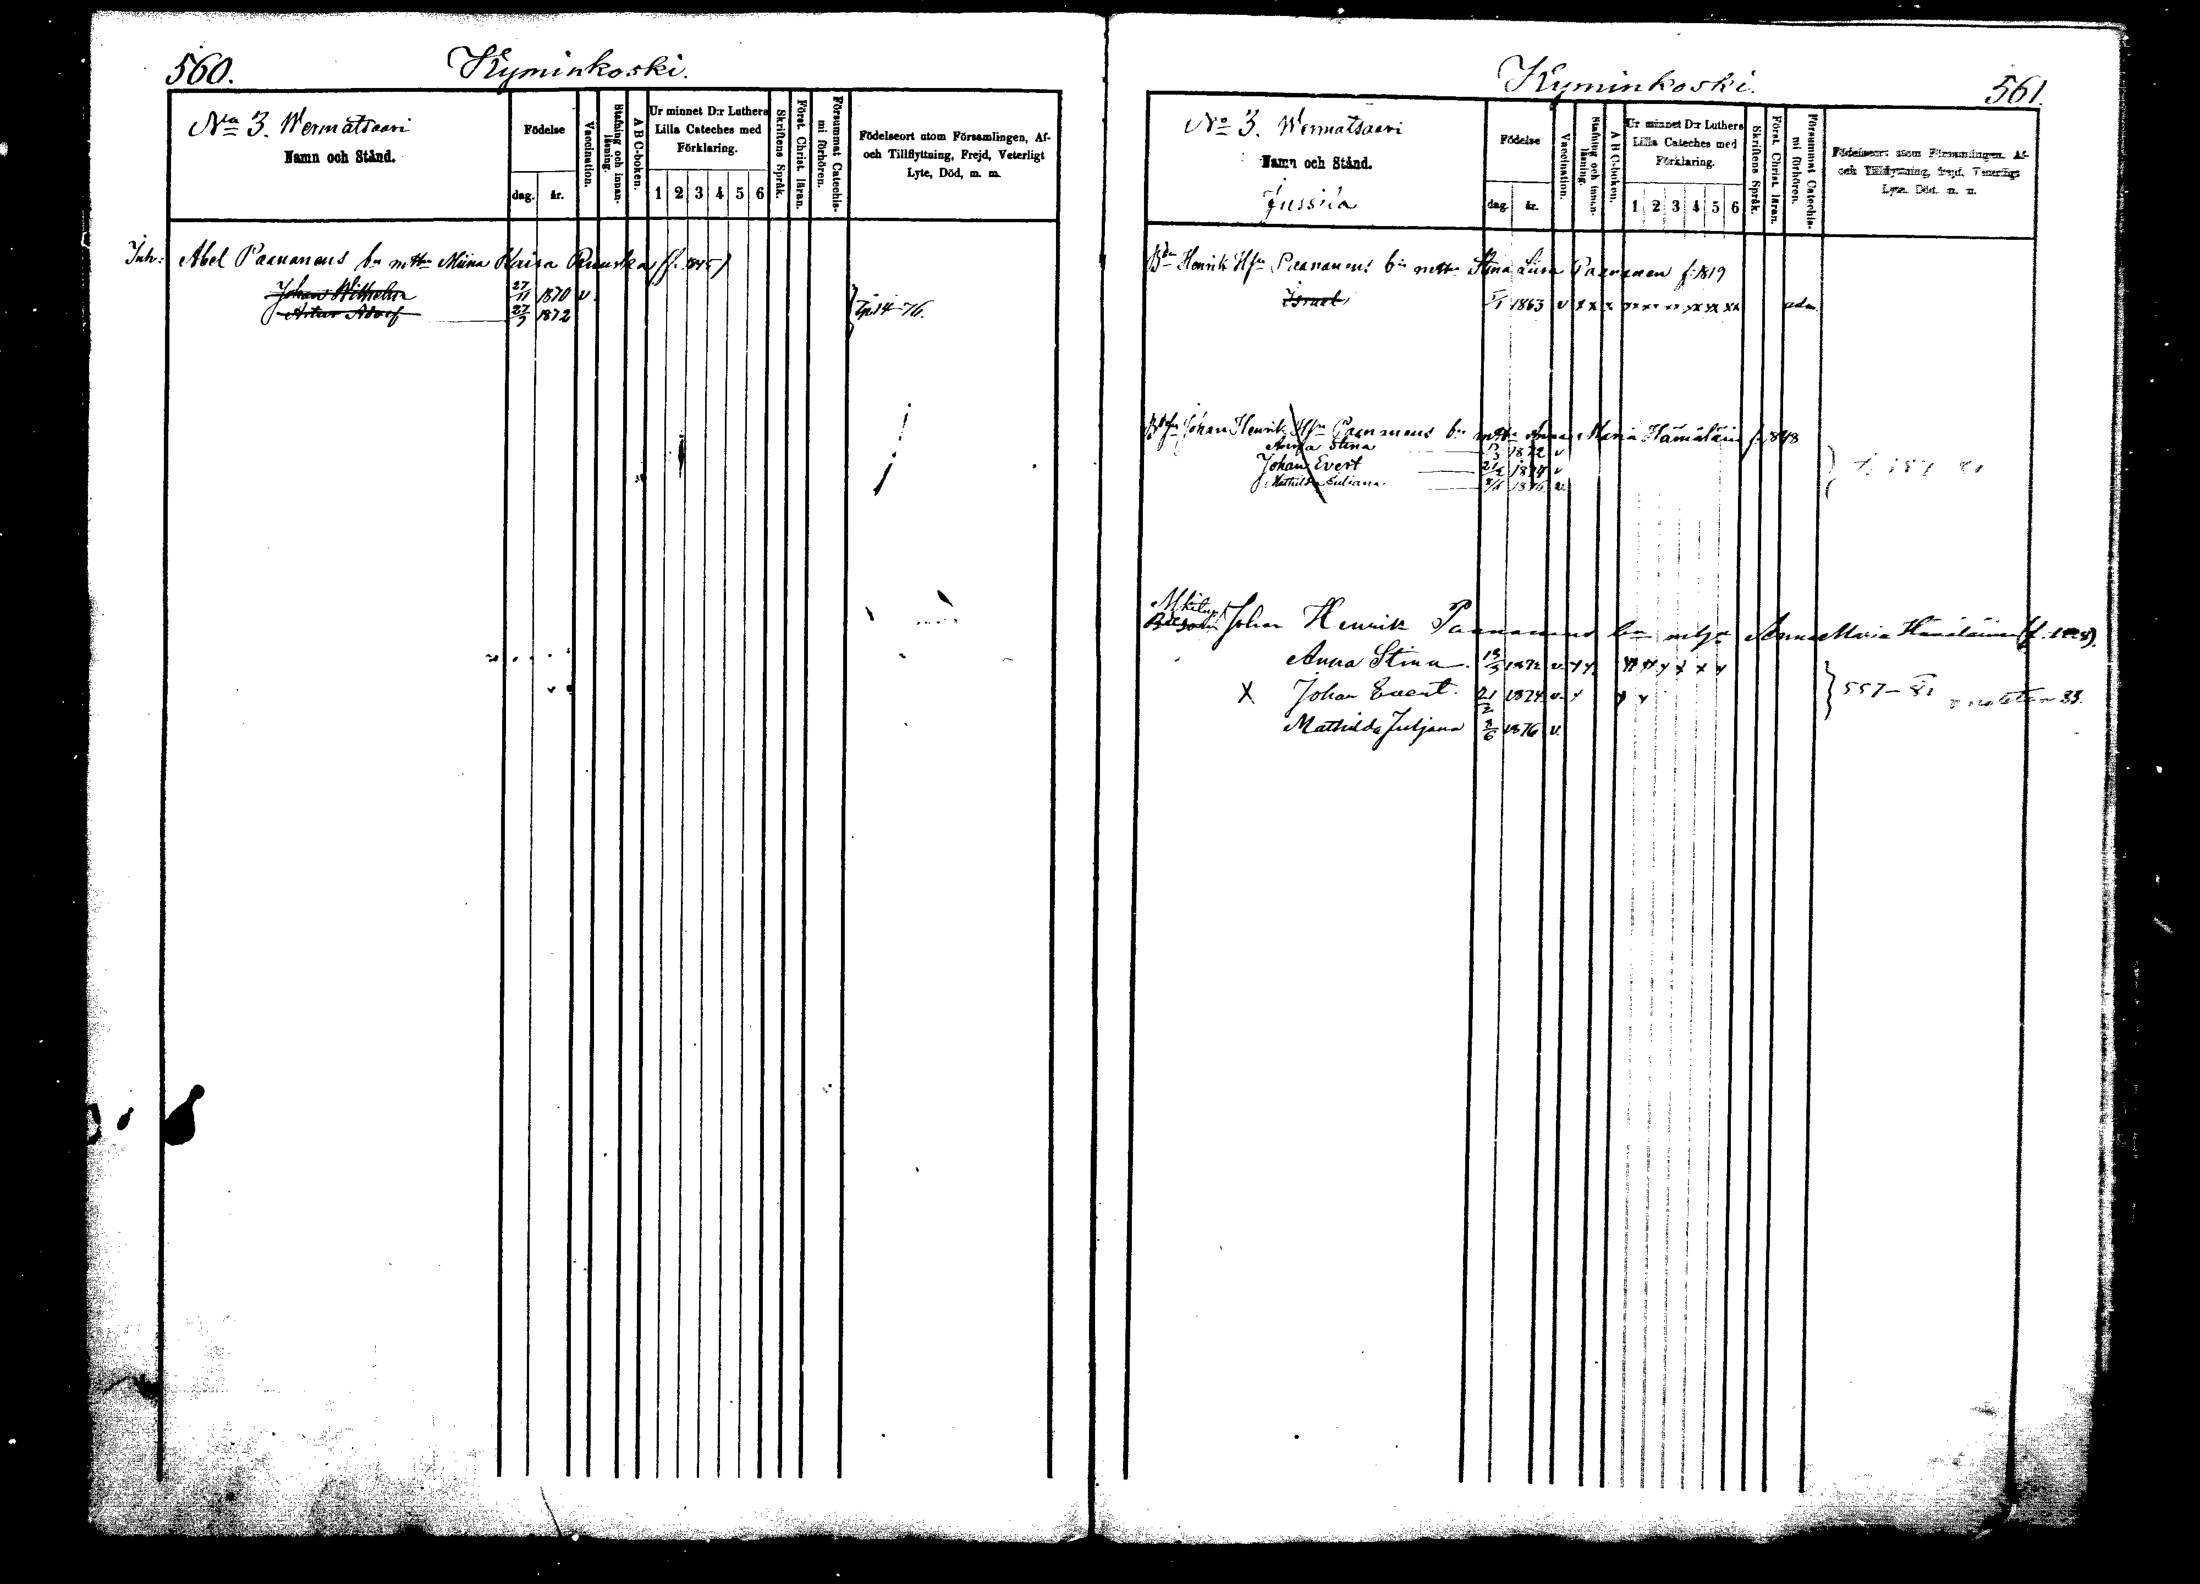 560.
Kyminkoski.
No 3. Wermatsaari
Namn och Stånd.
Födelse
dag. år.
Vaccination.
Stafning och innan-läsning.
A B C-boken.
Ur minnet D:r Luthers
Lilla Cateches med
Förklaring.
1 2 3 4 5 6
Skriftens Språk.
Först. Christ. läran.
Försummat Catechis-mi förhören.
Födelseort utom Församlingen, Af-
och Tillflyttning, Frejd, Veterligt
Lyte, Död, m. m.
Inh: Abel Paananens bn mttn Miina Kaisa (f. 1845)
Johan Wilhelm 27/11 1870 v
Artur Adolf 27/9 1872
14-76.
Kyminkoski.
561.
No 3. Wermatsaari
Namn och Stånd.
Jussila
Födelse
dag. år.
Vaccination.
Stafning och innan-läsning.
A B C-boken.
Ur minnet D:r Luthers
Lilla Cateches med
Förklaring.
1 2 3 4 5 6
Skriftens Språk.
Först. Christ. läran.
Försummat Catechis-mi förhören.
Födelseort utom Församlingen, Af-
och Tillflyttning, frejd, Veterligt
Lyte, Död, m. m.
Bdn Henrik Hfn Paananens bn mttn Stina Liisa Paananen f. 1819
Israel 1863 v x x x xx xx xx xx xx xx adm.
Johan Henrik Hfn Paananens bn mttn Anna Maria Hämäläin f. 1848
Anna Stina 13/3 1872 v
Johan Evert 21/2 1874 v
Mathilda Juliana 2/6 1876 v.
Johan Henrik Paananens bn Anna Maria Hämäläinen (f. 1848).
Anna Stina 13/3 1872 v. x x. x x x x x x
X Johan Evert. 21/2 1874 v. x x x
557-81
Mathilda Juljana 2/6 1876 v.